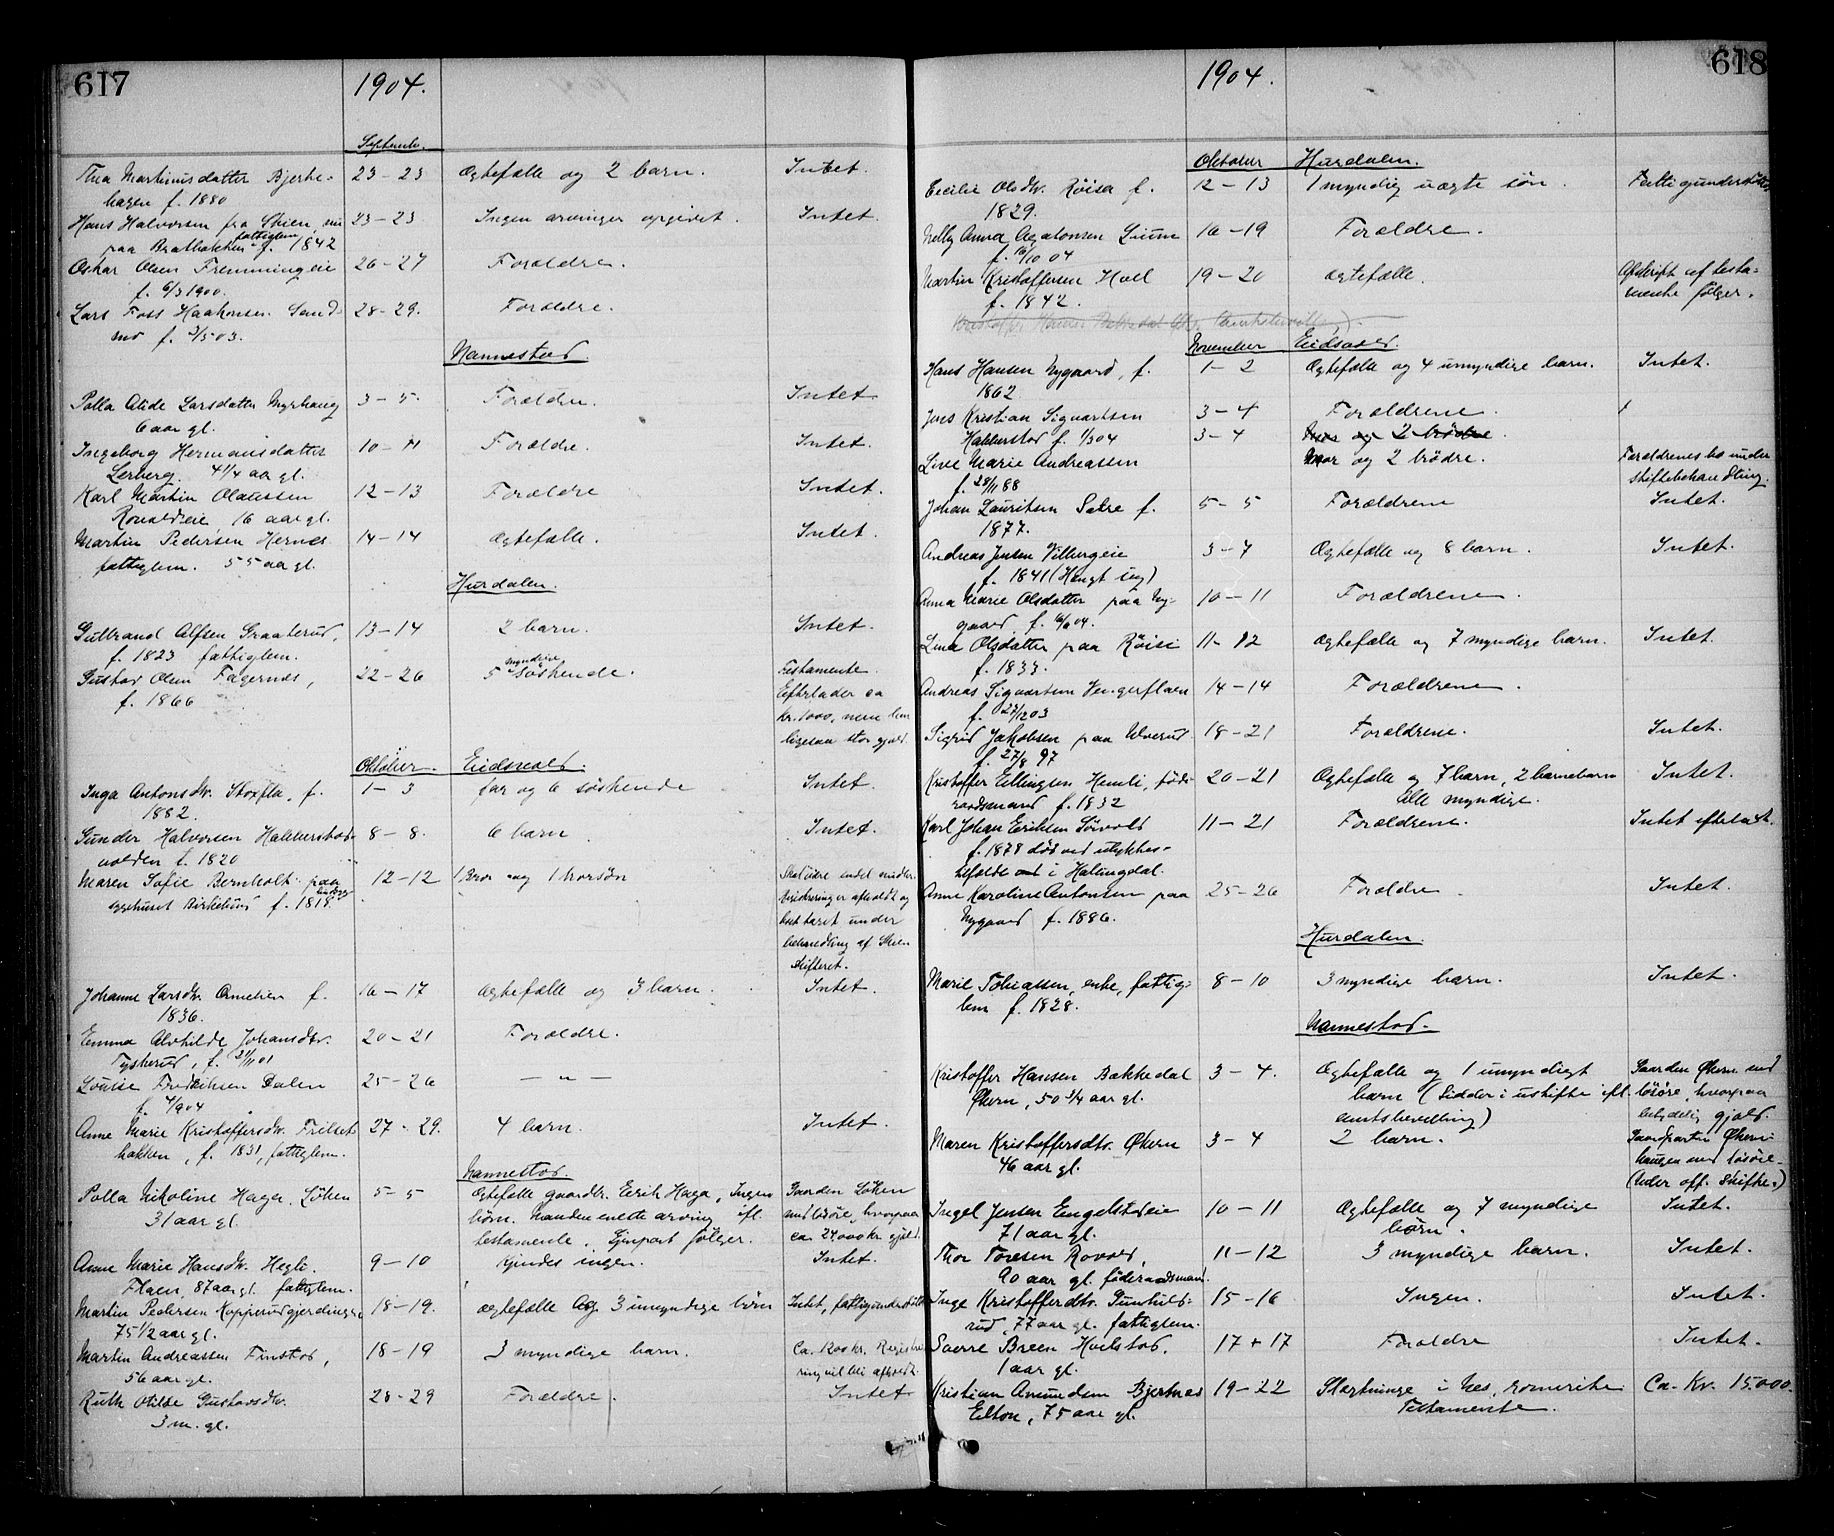 617
1904.
Septemb.
Thea Martinusdatter Bjerke- 23-23 Ægtefælle og 2 barn. Intet.
hagen f. 1880
Hans Halvorsen fra Skien, nu 23-23 Ingen arvinger opgivet. Intet.
paa Brathakken fattiglem f. 1842
Oskar Olsen Fremmingeie 26-27 Forældre.
f. 6/3 1900.
Lars Foss Haakonsen Sand- 28-29. Forældre.
f. 2/5 03.
Nannestad.
Palla Alide Larsdatter Myrhaug 3-5 Forældre. Intet
6 aar gl.
Ingeborg Hermansdatter 10-11 Forældre. Intet.
Lerberg. 4 1/4 aar gl.
Karl Martin Olaussen 12-13 Forældre Intet.
16 aar gl.
Martin Pedersen Hernes 14-14 Ægtefælle. Intet.
fattiglem. 55 aar gl.
Hurdalen.
Gulbrand Alfsen Graaterud, 13-14 2 barn. Intet.
f. 1823 fattiglem.
Gustav Olsen Fagernes, 22-26 5 myndige søskende. Testamente.
f. 1866 Efterlader ca
kr. 1000, men
ligesaa stor gjæld.
Oktober. Eidsvold.
Inga Antonsdtr. Storfla, f. 1-3 far og 6 søskende Intet.
1882.
Gunder Halvorsen Hakkerstad- 8-8. 6 barn Intet.
volden f. 1820
Maren Sofie Bernholt paa 12-12 1 Bror og 1 brorsøn
Birkelund f. 1818.
afholdt og
boet taget under
behandling af Skien
skifteret.
Johanne Larsdtr. f. 16-17 Ægtefælle og 3 barn. Intet.
1836.
Emma Alvhilde Johansdtr. 20-21 Forældre.
Tyskerud, f. 21/11 01
Lovise Fredriksen Dalen 25-26 — " —
f. 4/9 04
Anne Marie Kristoffersdtr. Trilset- 27-29. 4 barn. Intet.
bakken, f. 1831, fattiglem.
Nannestad.
Palla Nikoline Haga, Løken 5-5 Ægtefælle gaardbr. Eerik Haga, Ingen Gaarden Løken
31 aar gl. børn. Manden eneste arving ifl. med løsøre, hvorpaa
testamente. Gjenpart følger. ca. 24000 kr gjæld.
Anne Marie Hansdtr. Hegli. 9-10 Kjendes ingen. Intet.
Flaen, 87 aar gl. fattiglem.
Martin Pedersen Kopperudgjerdingen 18-19. Ægtefælle og 3 umyndige børn Intet, fattigunderstøttet
75 1/2 aar gl.
Martin Andreassen Finstad, 18-19 3 myndige barn. Ca. 1200 kr. Registre
56 aar gl. ring vil bli afholdt.
Ruth Otilde Gustavsdtr. 28-29 Forældre. Intet
3 m. gl.
618
1904.
Oktober Hurdalen.
Cecilie Olsdtr. Røisa f. 12-13 1 myndig uægte søn. Fattigunderstøttet
1829.
Nelly Anna Agatonsen Lium 16-19 Forældre.
f. 16/10 04
Martin Kristoffersen Hoel 19-20 ægtefælle. Afskrift af testa-
f. 1842. mente følger.
November Eidsvold.
Hans Hansen Nygaard, f. 1-2 Ægtefælle og 4 umyndige barn. Intet.
1862
Jens Kristian Sigvartsen 3-4 Forældrene.
Hakkerstad f. 1/3 04 3-4 Mor og 2 brødre.
Live Marie Andreassen Mor og 2 brødre. Forældrenes bo under
f. 28/11 88 skiftebehandling.
Johan Lauritsen Sætre f. 5-5 Forældrene Intet.
1877.
Andreas Jensen Vilbergeie 3-7 Ægtefælle og 8 barn. Intet.
f. 1841 (Hængt sig)
Anna Marie Olsdatter paa Ny- 10-11 Forældrene.
gaard, f. 04.
Lina Olsdatter paa Røisi 11-12 ægtefælle og 7 myndige barn. Intet.
f. 1833.
Andreas Sigvartsen Vengerflaen 14-14 Forældrene.
f. 27/12 03
Sigrid Jakobsen paa Ulverud 18-21 Forældrene. Intet.
f. 27/8 97
Kristoffer Ellingsen Hemli, føde- 20-21 Ægtefælle og 7 barn, 2 barnebarn Intet.
raadsmand f. 1832 alle myndige.
Karl Johan Eriksen Sørvold 11-21 Forældrene. Intet efterladt.
f. 1878 død ved ulykkes-
tilfælde i Hallingdal.
Anne Karoline Antonsen paa 25-26 Forældre Intet.
Nygaard f. 1886.
Hurdalen.
Marie Tobiassen, enke, fattig- 8-10 3 myndige barn. Intet.
lem f. 1828.
Nannestad.
Kristoffer Hansen Bakkedal 3-4. Ægtefælle og 1 umyndigt Gaarden Økern med
Økern, 50 3/4 aar gl. barn (Sidder i uskifte ifl. løsøre, hvorpaa
amtsbevilling) betydelig gjæld.
Maren Kristoffersdtr. Økern 3-4 2 barn. Gaardparten Økern-
46 aar gl. haugen med løsøre.
(Under off. skifte.)
Ingel Jensen Engelstadeie 10-11 Ægtefælle og 7 myndige Intet.
71 aar gl. børn.
Thor Toresen Rovold, 11-12 3 myndige barn. Intet.
90 aar gl. føderaadsmand.
Inge Kristoffersdtr. Gunhilds- 15-16 Ingen. Intet.
rud, 77 aar gl. fattiglem.
Sverre Breen Hvelstad. 17+17 Forældre Intet.
1 aar gl.
Kristian Amundsen Bjertnes 19-22 Slægtninge i Nes, Romerike Ca. Kr. 15.000.
Elton, 75 aar gl. Testamente.